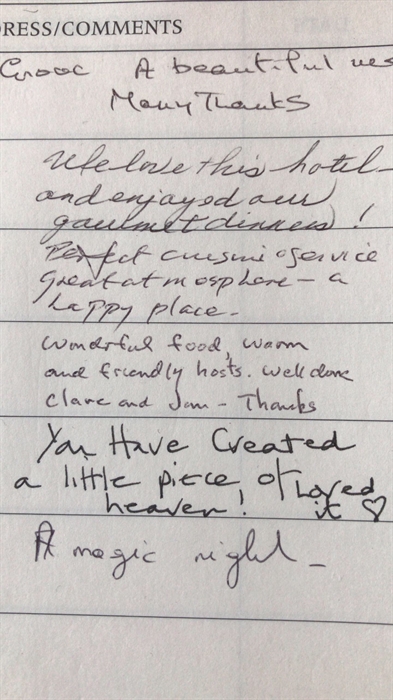 RESS/COMMENTS
A beautiful
Many Thanks
We love this hotel -
and enjoyed our
gourmet dinners!
Perfect cuisine & service
great atmosphere - a
happy place -
Wonderful food, warm
and friendly hosts. Well done
Clare and - Thanks
You Have Created
a little piece of
heaven! Loved
it ♡
A magic night -